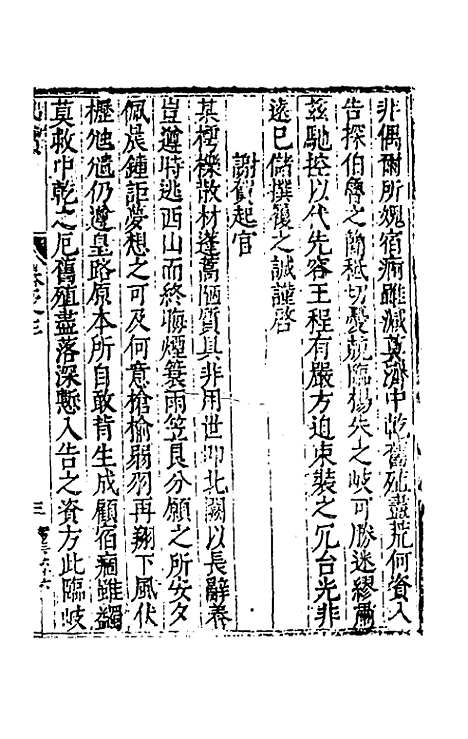 非偶爾所愧宿痾雖減莫濟中乾舊殖盡荒何資入
告探伯魯之簡秪切憂兢臨楊朱之岐可勝迷繆爾
茲馳控以代先容王程有嚴方迫束裝之冗台光非
遠已儲撰履之誠謹啓
謝賀起官
某樗櫟散材蓬蒿陋質具非用世叩北闕以長辭養
豈遵時逃西山而終晦煙簑雨笠良分願之所安夕
佩晨鍾詎夢想之可及何意槍榆弱羽再翔下風伏
櫪虺𬯎仍遵皇路原本所自敢背生成顧宿痾雖蠲
莫救中乾之厄舊殖盡落深慙入告之資方此臨岐
卷之三
三